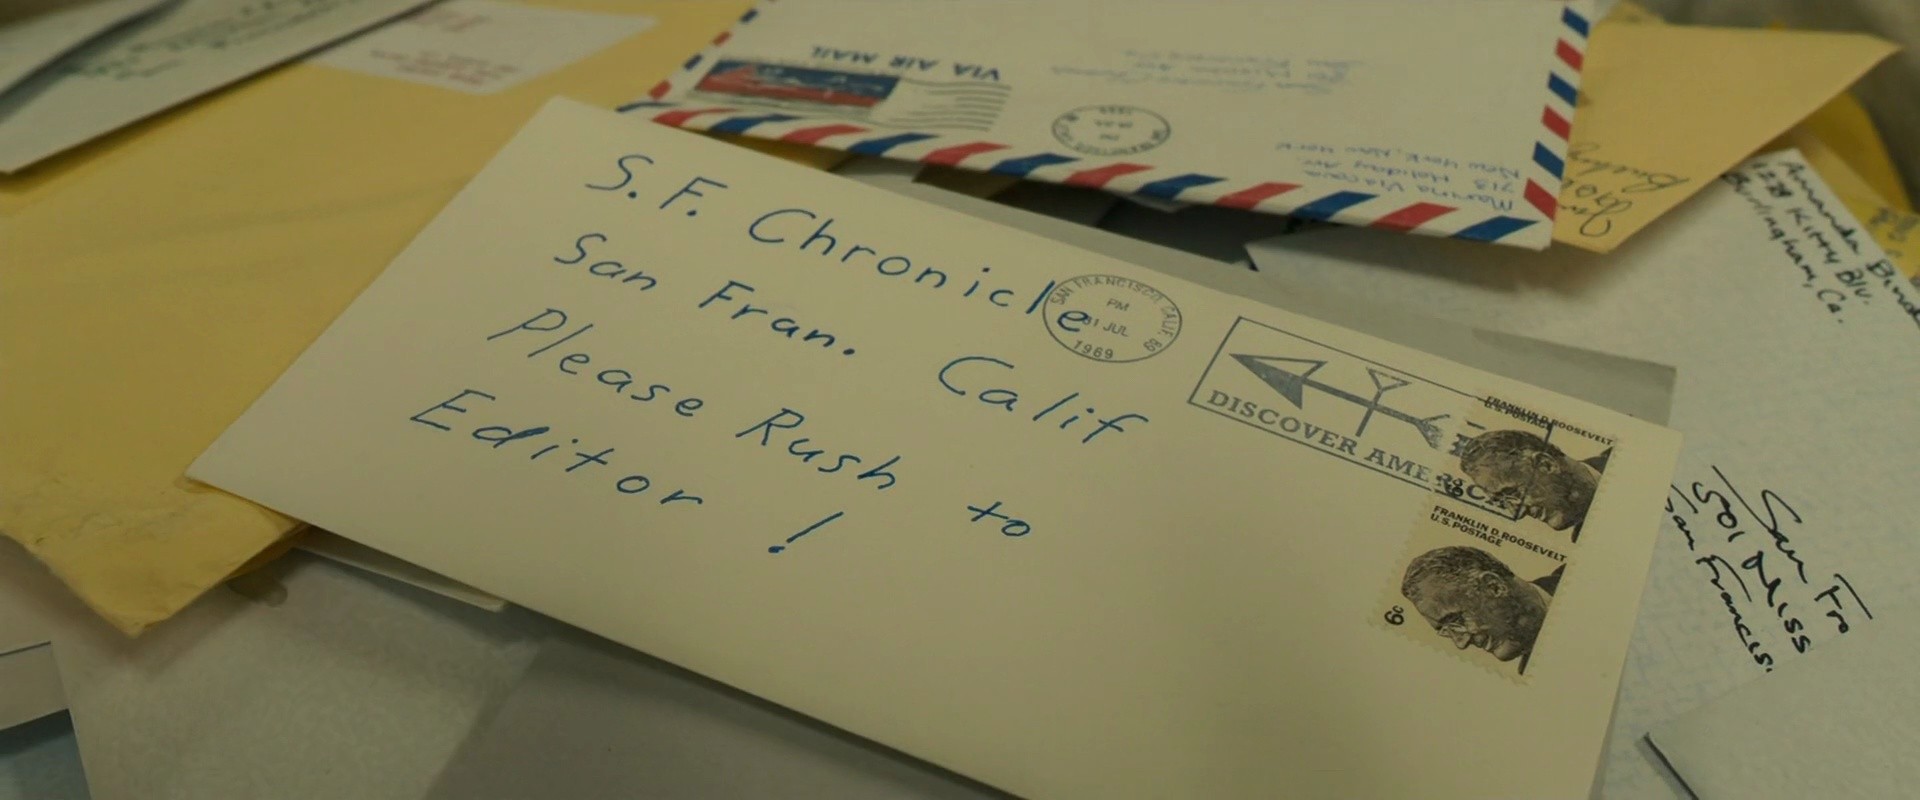 S.F. Chronicle
San Fran. Calif
Please Rush to
Editor !
SAN FRANCISCO, CALIF. 69
PM
31 JUL
1969
DISCOVER AMERICA
FRANKLIN D. ROOSEVELT
U.S. POSTAGE
6¢
FRANKLIN D. ROOSEVELT
U.S. POSTAGE
6¢
VIA AIR MAIL
713 Holiday Av.
New York, New York
Amanda
1228 Kitty Blv.
Burlingham, Ca.
San Fra
501 Miss
San Francis.